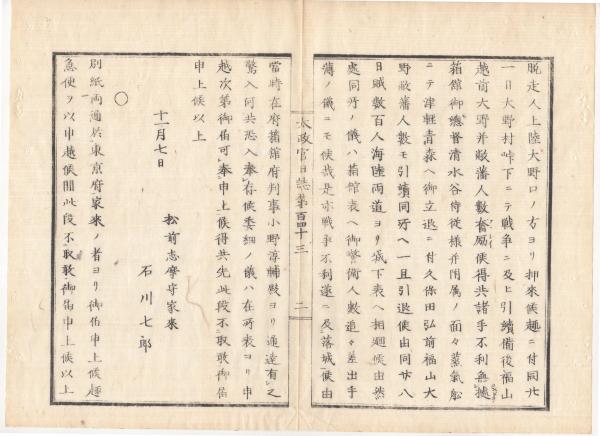 脱走人上陸大野口ノ方ヨリ押來候趣ニ付同廿
一日大野村峠下ニテ戦争ニ及ヒ引續備後福山
越前大野并敝藩人數奮励候得共諸手不利無據
箱館御總督清水谷侍従様并附属ノ面々蒸氣舩
ニテ津軽青森ヘ御立退ニ付久保田弘前福山大
野敝藩人數モ引續同所ヘ一旦引退候由同廿八
日賊數百人海陸両道ヨリ城下表ヘ相廻候由然
處同所ノ儀ハ箱館表ヘ御警衛人數追々差出手
薄ノ儀ニモ候哉是亦戦争不利遂ニ及落城候由
太政官日誌第百四十三
二
當時在府箱館府判事小野淳輔殿ヨリ通達有之
驚入何共恐入奉存候委細ノ儀ハ在所表ヨリ申
越次第御伯可奉申上候得共先此段不取敢御伯
申上候以上
十一月七日
松前志摩守家来
石川七郎
○
別紙両通於東京府家来ノ者ヨリ御伯申上候趣
急使ヲ以申越候間此段不取敢御届申上候以上